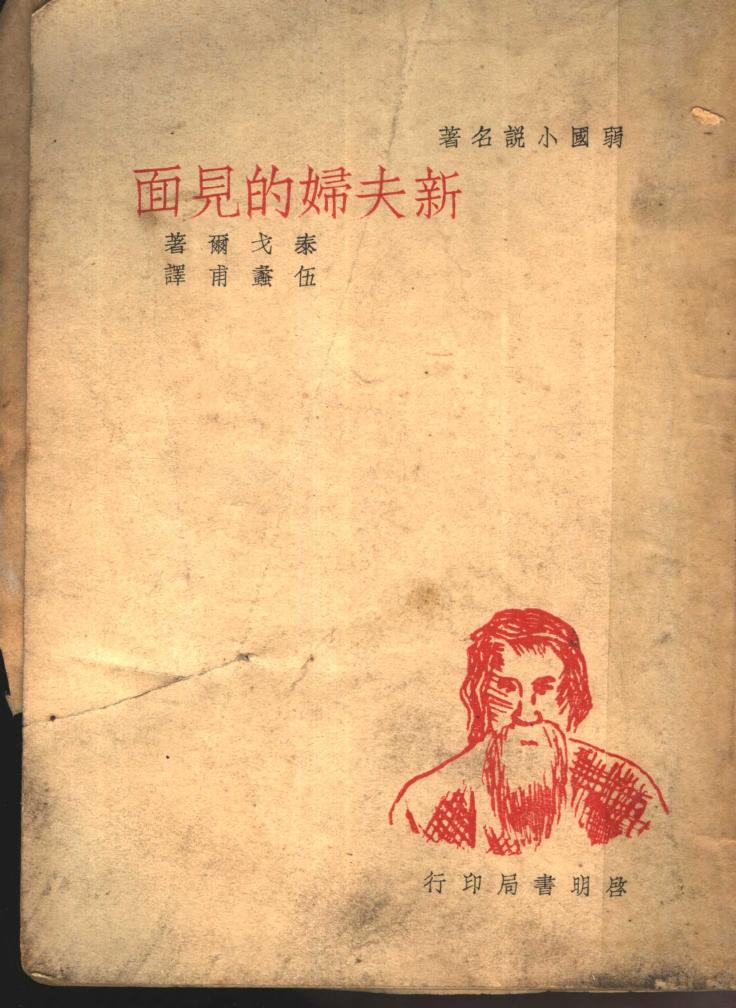 弱國小説名著
新夫婦的見面
泰戈爾著
伍蠡甫譯
啓明書局印行